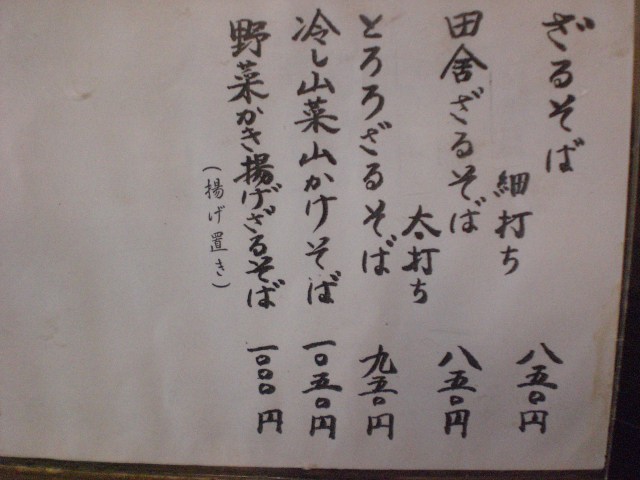 ざるそば
細打ち
八五〇円
田舎ざるそば
太打ち
八五〇円
とろろざるそば
九五〇円
冷し山菜山かけそば
一〇五〇円
野菜かき揚げざるそば
(揚げ置き)
一〇〇〇円